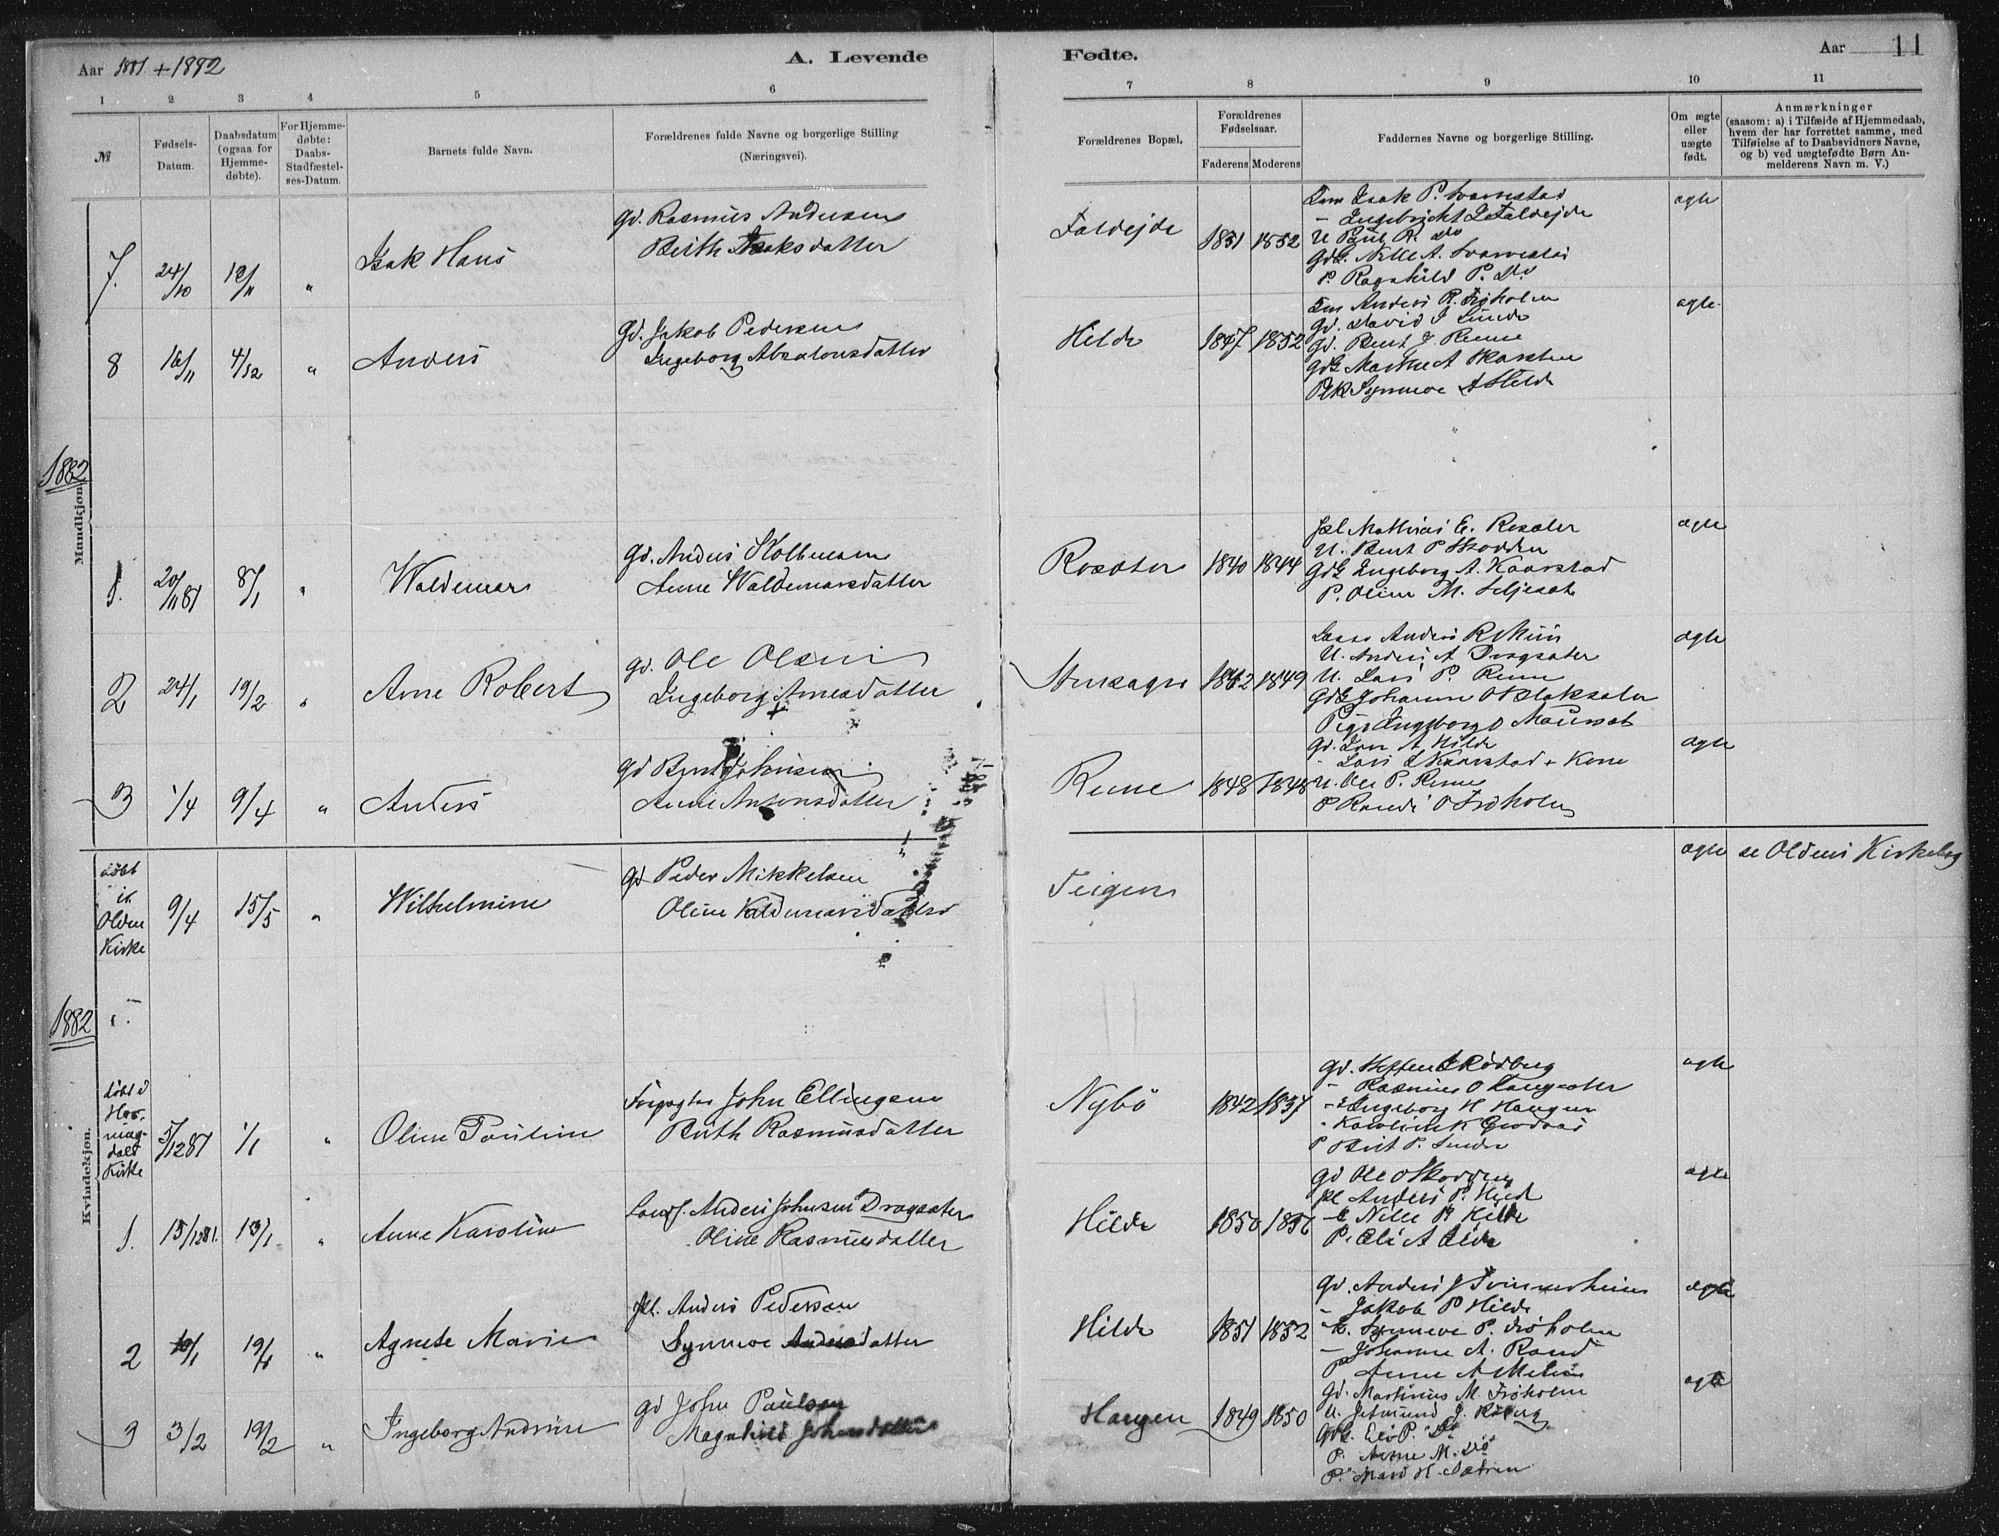 Aar 1881 + 1882
A. Levende
Fødte.
Aar 11
1 2 3 4 5 6 7 8 9 10 11
№
Fødsels-
Datum.
Daabsdatum
(ogsaa for
Hjemme-
døbte).
For Hjemme-
døbte:
Daabs-
Stadfæstel-
ses-Datum.
Barnets fulde Navn.
Forældrenes fulde Navne og borgerlige Stilling
(Næringsvei).
Forældrenes Bopæl.
Forældrenes
Fødselsaar.
Faderens Moderens
Faddernes Navne og borgerlige Stilling.
Om ægte
eller
uægte
født.
Anmærkninger
(saasom: a) i Tilfælde af Hjemmedaab,
hvem der har forrettet samme, med
Tilføielse af to Daabsvidners Navne,
og b) ved uægtefødte Børn An-
melderens Navn m. V.)
7. 24/10 12/11 " Isak Hans
gd. Rasmus Andersen
Birth Isaksdatter
Faldejde 1851 1852
Isak P. Svarvestad
- Ingebricht I Faldejde
U Paul R. Do
Gdk. Nille A. Svarvestad
P. Ragnhild P. Do
ægte
8 16/11 4/12 " Anders
gd. Jakob Pedersen
Ingeborg Absalonsdatter
Hilde 1847 1852
Anders R. Frøholm
gd. David J Sunde
gd. Bent J Renne
gdk Marthe A Skarsten
Synneve A Hilde
ægte
1882
Mandkjøn.
1. 20/11 81 8/1 " Waldemar
gd. Anders Kolbensen
Anne Waldemarsdatter
Rosæter 1840 1844
Mathias E. Rosæter
U. Bent P Skodden
gdk Ingeborg A. Kaarstad
P. Oline M. Seljeset
ægte
2 24/1 19/2 " Arne Robert
gd. Ole Olsen
Ingeborg Arnesdatter
1842 1849
Anders R
U. Anders A Dragsæter
U. Lars P. Renne
gdk Johanne O
Pige Ingeborg O Maurset
ægte
3 1/4 9/4 " Anders
gd Bent Johnsen
Anne Antonsdatter
Renne 1848 1848
gd. Lars A Hilde
- Lars L Kaarstad + Kone
U. Ole P. Renne
P Randi O Frøholm
ægte
døbt
i
Olden
Kirke
9/4 15/5 " Wilhelmine
gd Peder Mikkelsen
Oline Valdemarsdatter
Teigen
ægte se Oldens Kirkebog
1882
Kvindekjøn.
døbt i
Hor-
ning-
dals
Kirke
5/12 81 1/1 " Oline Pauline
Forpagter John Ellingsen
Birth Rasmusdatter
Nybö 1842 1837
gd. Steffen A Rødberg
- Rasmus O Langesæter
- Ingeborg H Haugen
- Karoline K
P Birt P. Sunde
ægte
1. 15/12 81. 15/1 " Anne Karoline
Anders Johnsen Dragsæter
Oline Rasmusdatter
Hilde 1850
gd Ole O Skodden
Anders P. Hilde
- Nille R Hilde
P. Eli A Hilde
ægte
2 10/1 19/ " Agnete Marie
Anders Pedersen
Synneve Andersdatter
Hilde 1851 1852
gd. Anders J Tvinnereim
- Jakob P Hilde
- Synneve P. Frøholm
- Johanne A. Rand
P Anne A
ægte
3 3/2 19/2 " Ingeborg Andrine
gd John Paulsen
Magnhild Johnsdatter
Haugen 1849 1850
gd. Martinus M. Frøholm
U. Jetmund J. Røberg
gdk. Eli P. Do
P. Anne M. Do
P. Mari H. Sætren
ægte